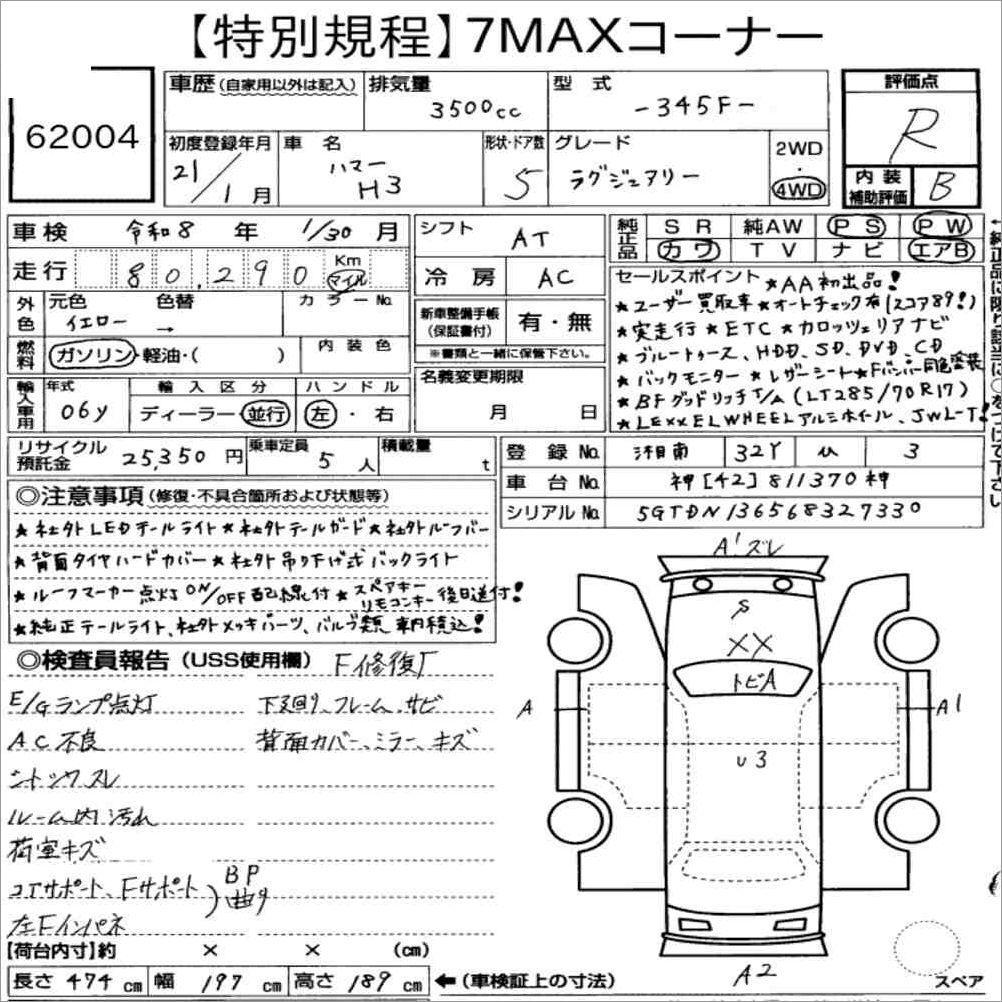 【特別規程】7MAXコーナー
62004
車歴(自家用以外は記入)
排気量 3500cc
型式 -345F-
評価点 R
初度登録年月 21/1月
車名 ハマー H3
形状・ドア数 5
グレード ラグジュアリー
2WD
4WD
内装補助評価 B
車検 令和8年 1/30月
走行 80,290 Km マイル
外色 元色 イエロー 色替 → カラーNo.
燃料 ガソリン・軽油・( ) 内装色
輸入車用 年式 06y 輸入区分 ディーラー・並行 ハンドル 左・右
リサイクル預託金 25,350円 乗車定員 5人 積載量 t
シフト AT
冷房 AC
新車整備手帳(保証書付) 有・無
※書類と一緒に保管下さい。
名義変更期限 月 日
純正品 SR 純AW PS PW
カワ TV ナビ エアB
セールスポイント ★AA初出品!
★ユーザー買取車★オートチェック有(スコア89!)
★実走行★ETC★カロッツェリアナビ
★ブルートゥース、HDD、SD、DVD、CD
★バックモニター★レザーシート★Fバンパー同色塗装
★BFグッドリッチT/A(LT285/70R17)
★LEXXELWHEELアルミホイール、JWL-T!
登録No. 湘南 32Y ぬ 3
車台No. 神[42]811370神
シリアルNo. 5GTDN136568327330
◎注意事項(修復・不具合箇所および状態等)
★社外LEDテールライト★社外テールガード★社外ルーフバー
★背面タイヤハードカバー★社外吊り下げ式バックライト
★ルーフマーカー点灯ON/OFF配線付★スペアキー リモコンキー後日送付!
★純正テールライト、社外メッキパーツ、バルブ類車内積込!
◎検査員報告(USS使用欄) F修復歴
E/Gランプ点灯 下廻り、フレーム、サビ
AC不良 背面カバー、ミラー、キズ
シートシワスレ
ルーム内汚れ
荷室キズ
コアサポート、Fサポート
左Fインパネ
)BP曲り
【荷台内寸】約 × × (cm)
長さ474cm 幅197cm 高さ189cm ←(車検証上の寸法)
A1ズレ
S
XX
トビA
A
A1
U3
A2
スペア